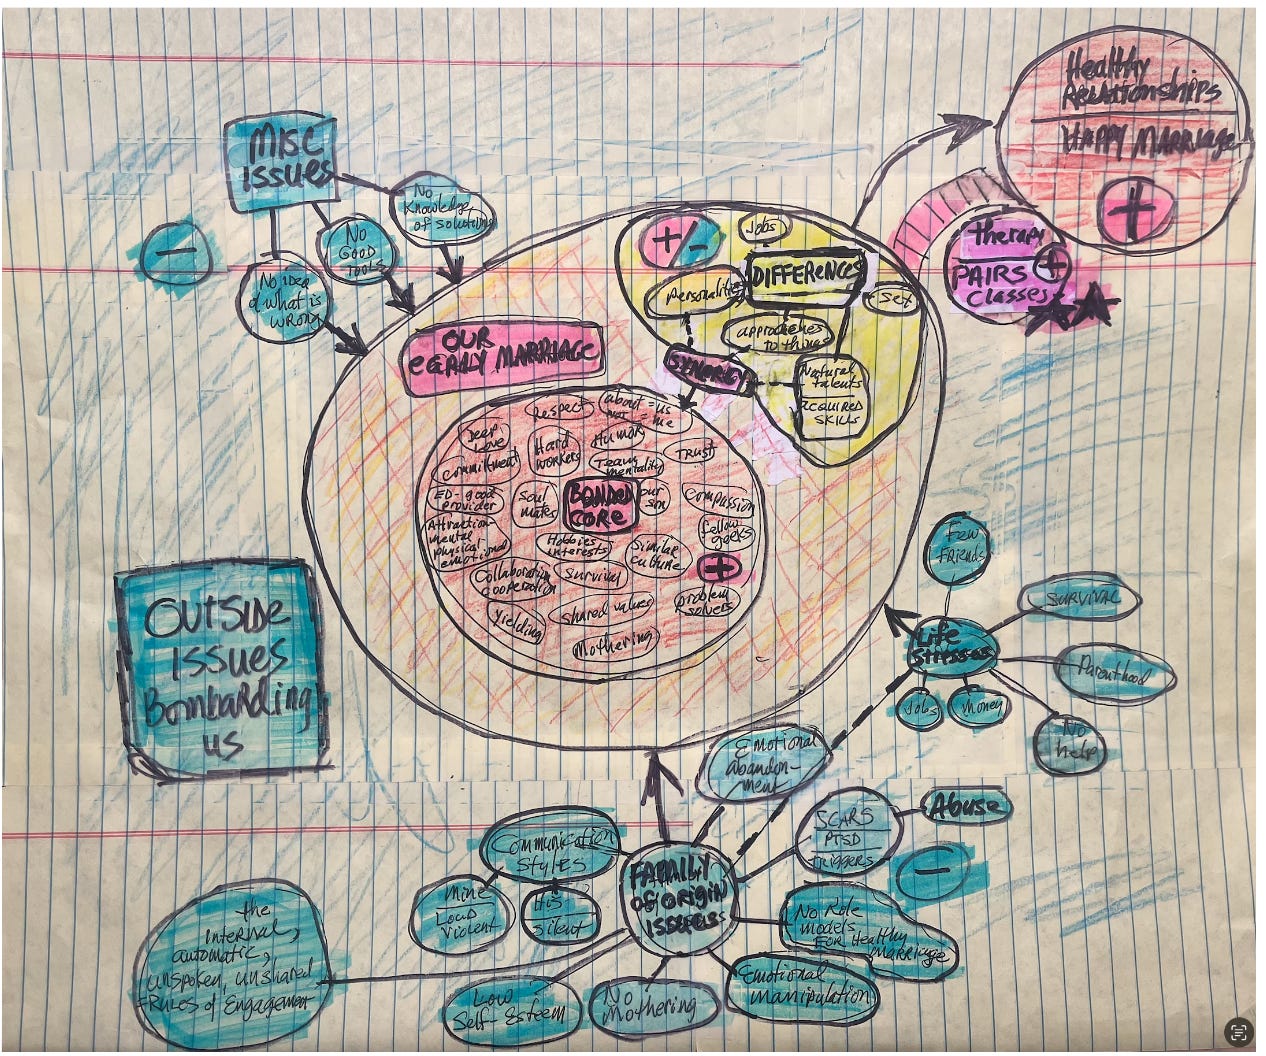 Healthy
Relationships
Happy Marriage
+
Therapy
PAIRS
Classes
+
MISC
ISSUES
No
Knowledge
of solutions
No
GOOD
TOOLS
No idea
of what is
wrong
−
OUR
EARLY MARRIAGE
+/-
Jobs
DIFFERENCES
Personalities
Sex
approaches
to things
SYNERGY
Natural
talents
REQUIRED
SKILLS
Respect
about = us
not = me
Deep
Love
Hard
workers
Humor
Team
mentality
TRUST
Commitment
ED- good
provider
Soul
mates
BONDED
CORE
our
son
Compassion
Attraction
mental
physical
emotional
Hobbies
interests
Similar
culture
fellow
geeks
+
Collaboration
cooperation
Survival
problem
solvers
Yielding
shared values
Mothering
OUTSIDE
ISSUES
Bombarding
us
Few
Friends
Life
Stresses
SURVIVAL
Parenthood
Jobs
Money
No
help
Emotional
abandon-
ment
SCARS
PTSD
triggers
Abuse
−
Communication
Styles
Mine
Loud
Violent
His
Silent
FAMILY
OF ORIGIN
ISSUES
No Role
models
For Healthy
Marriage
the
internal,
automatic,
unspoken, unshared
=Rules of Engagement
Low
Self-Esteem
No
Mothering
Emotional
Manipulation